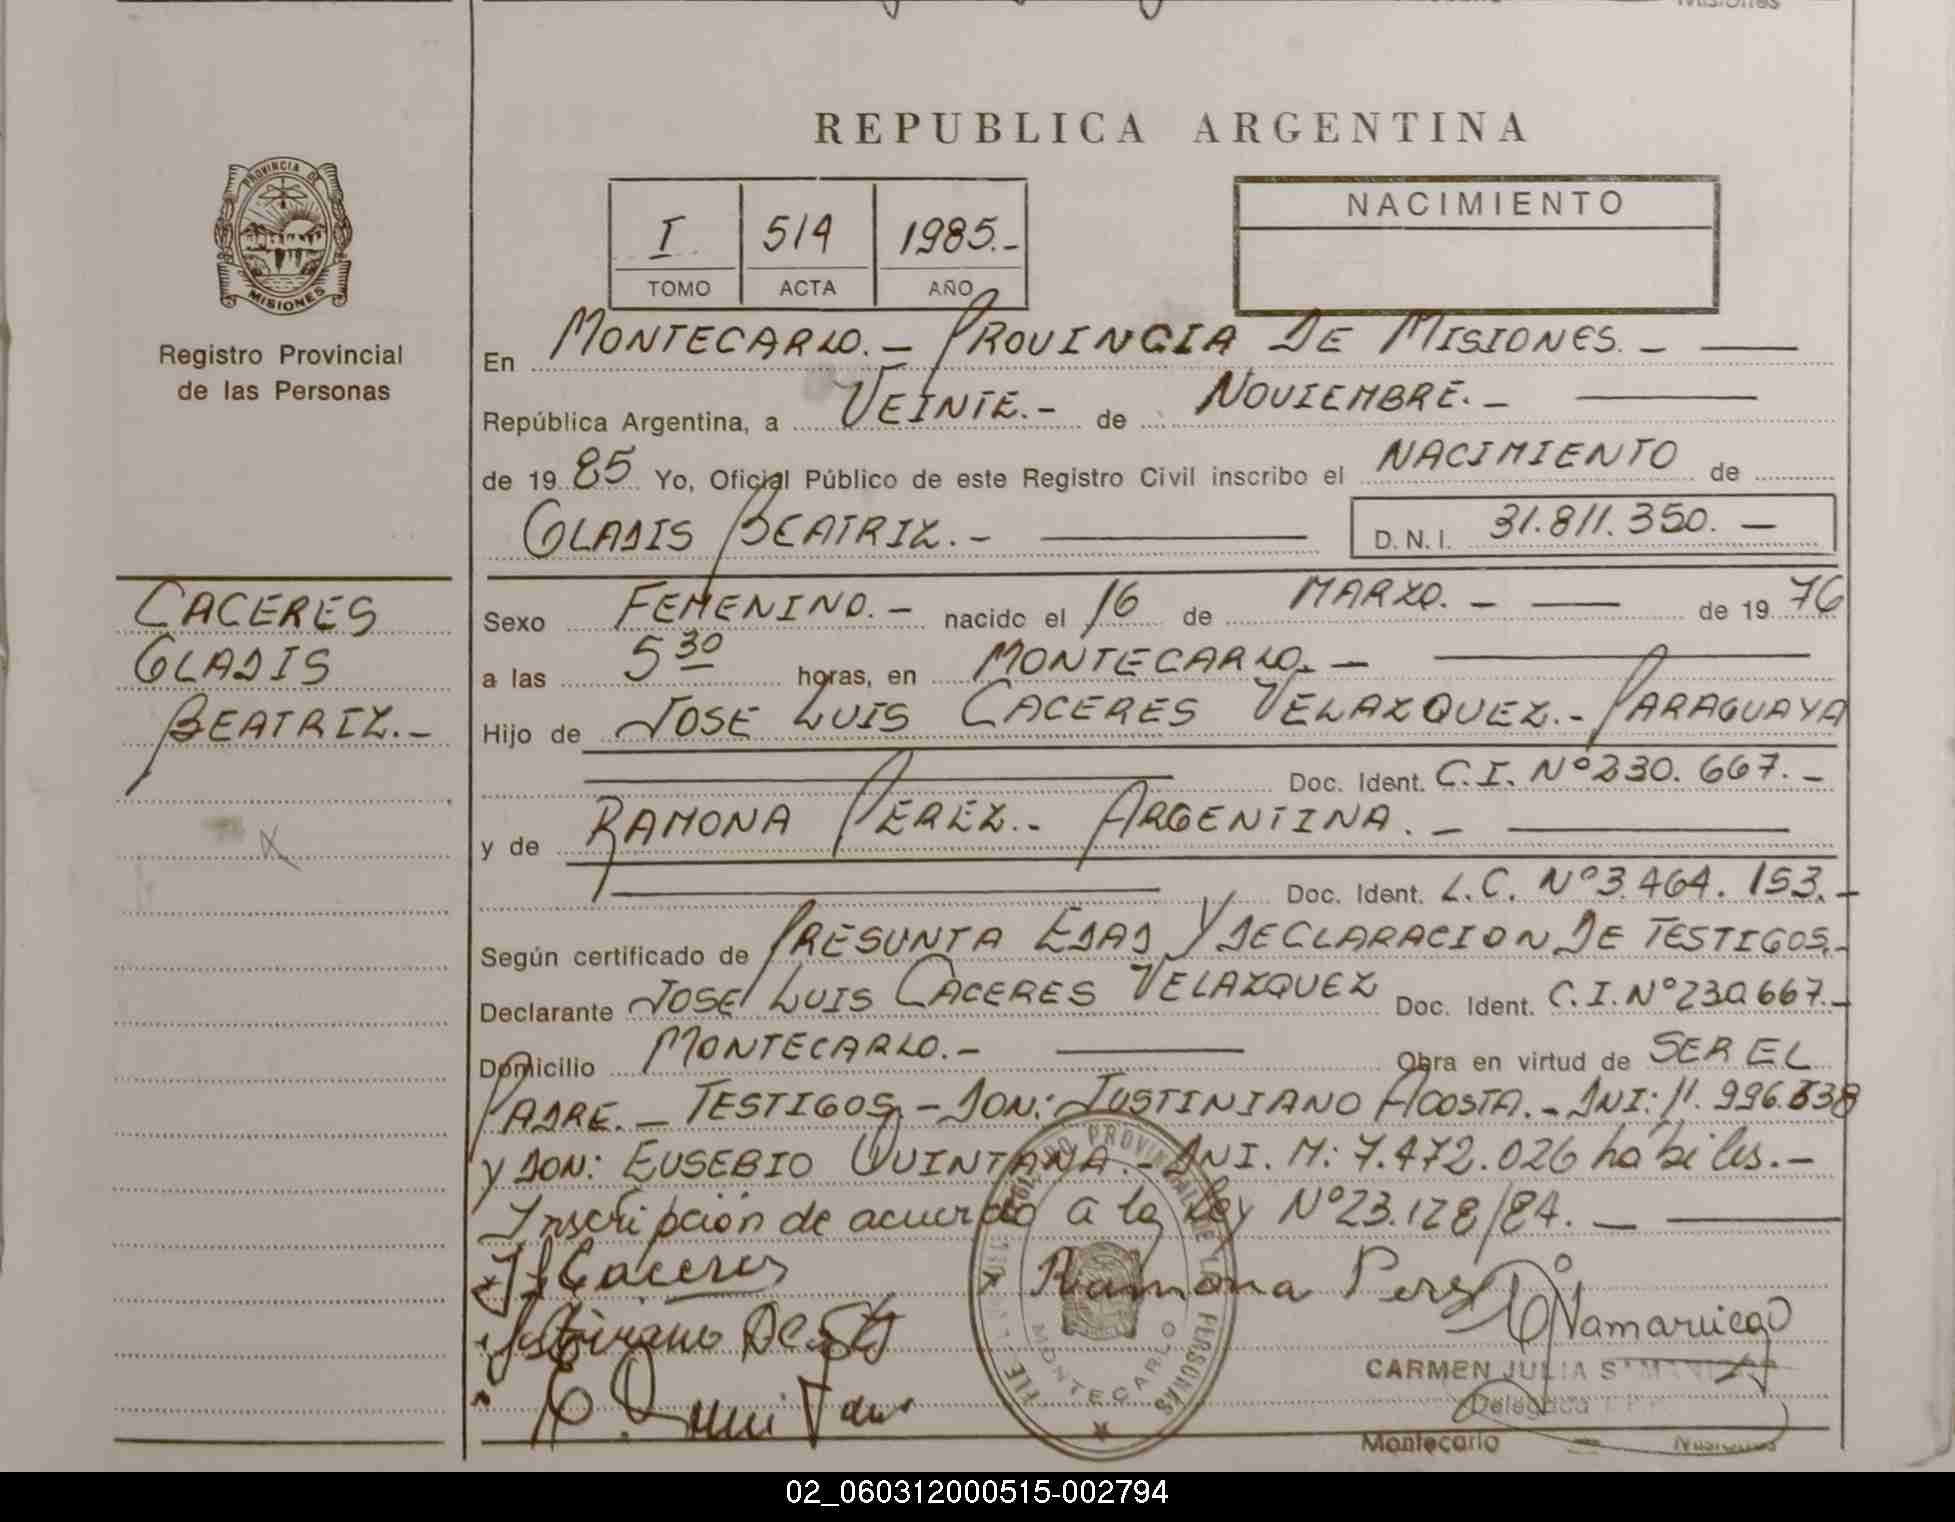 REPUBLICA ARGENTINA
PROVINCIA DE
MISIONES
Registro Provincial
de las Personas
I 514 1985.-
TOMO ACTA AÑO
NACIMIENTO
En MONTECARLO.- PROVINCIA DE MISIONES.-
República Argentina, a VEINTE.- de NOVIEMBRE.-
de 19 85 Yo, Oficial Público de este Registro Civil inscribo el NACIMIENTO de
GLADIS BEATRIZ.- D.N.I. 31.811.350.-
CACERES
GLADIS
BEATRIZ.-
Sexo FEMENINO.- nacido el 16 de MARZO.- de 19 76
a las 5 30 horas, en MONTECARLO.-
Hijo de JOSE LUIS CACERES VELAZQUEZ.- PARAGUAYA
Doc. Ident. C.I. Nº 230.667.-
y de RAMONA PEREZ.- ARGENTINA.-
Doc. Ident. L.C. Nº 3.464.153.-
Según certificado de PRESUNTA EDAD Y DECLARACION DE TESTIGOS.-
Declarante JOSE LUIS CACERES VELAZQUEZ Doc. Ident. C.I. Nº 230.667.-
Domicilio MONTECARLO.- Obra en virtud de SER EL
PADRE.- TESTIGOS.- DON: JUSTINIANO ACOSTA.- DNI: 11.996.838
y DON: EUSEBIO QUINTANA.- DNI. M: 7.472.026 hábiles.-
Inscripción de acuerdo a la Ley Nº 23.128/84.-
J L Caceres Ramona Perez
E. Quintana
MONTECARLO
CARMEN JULIA
Delegada
Montecarlo Misiones
02_060312000515-002794